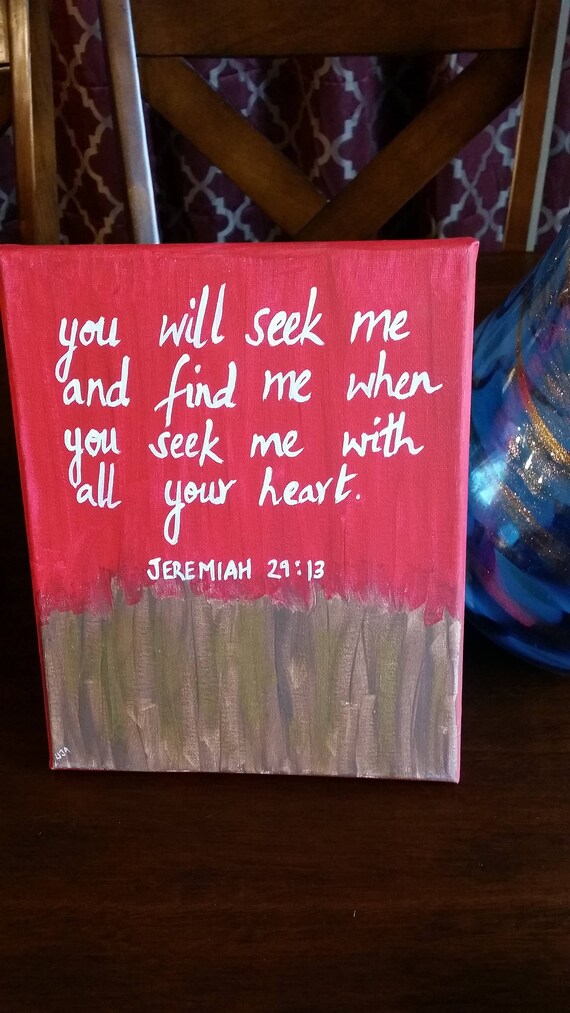 you will seek me
and find me when
you seek me with
all your heart.
JEREMIAH 29:13